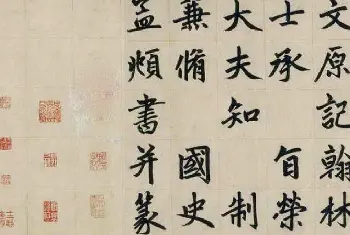 文原記翰林
士承 旨榮
大夫知 制
兼脩 國史
孟頫書并篆